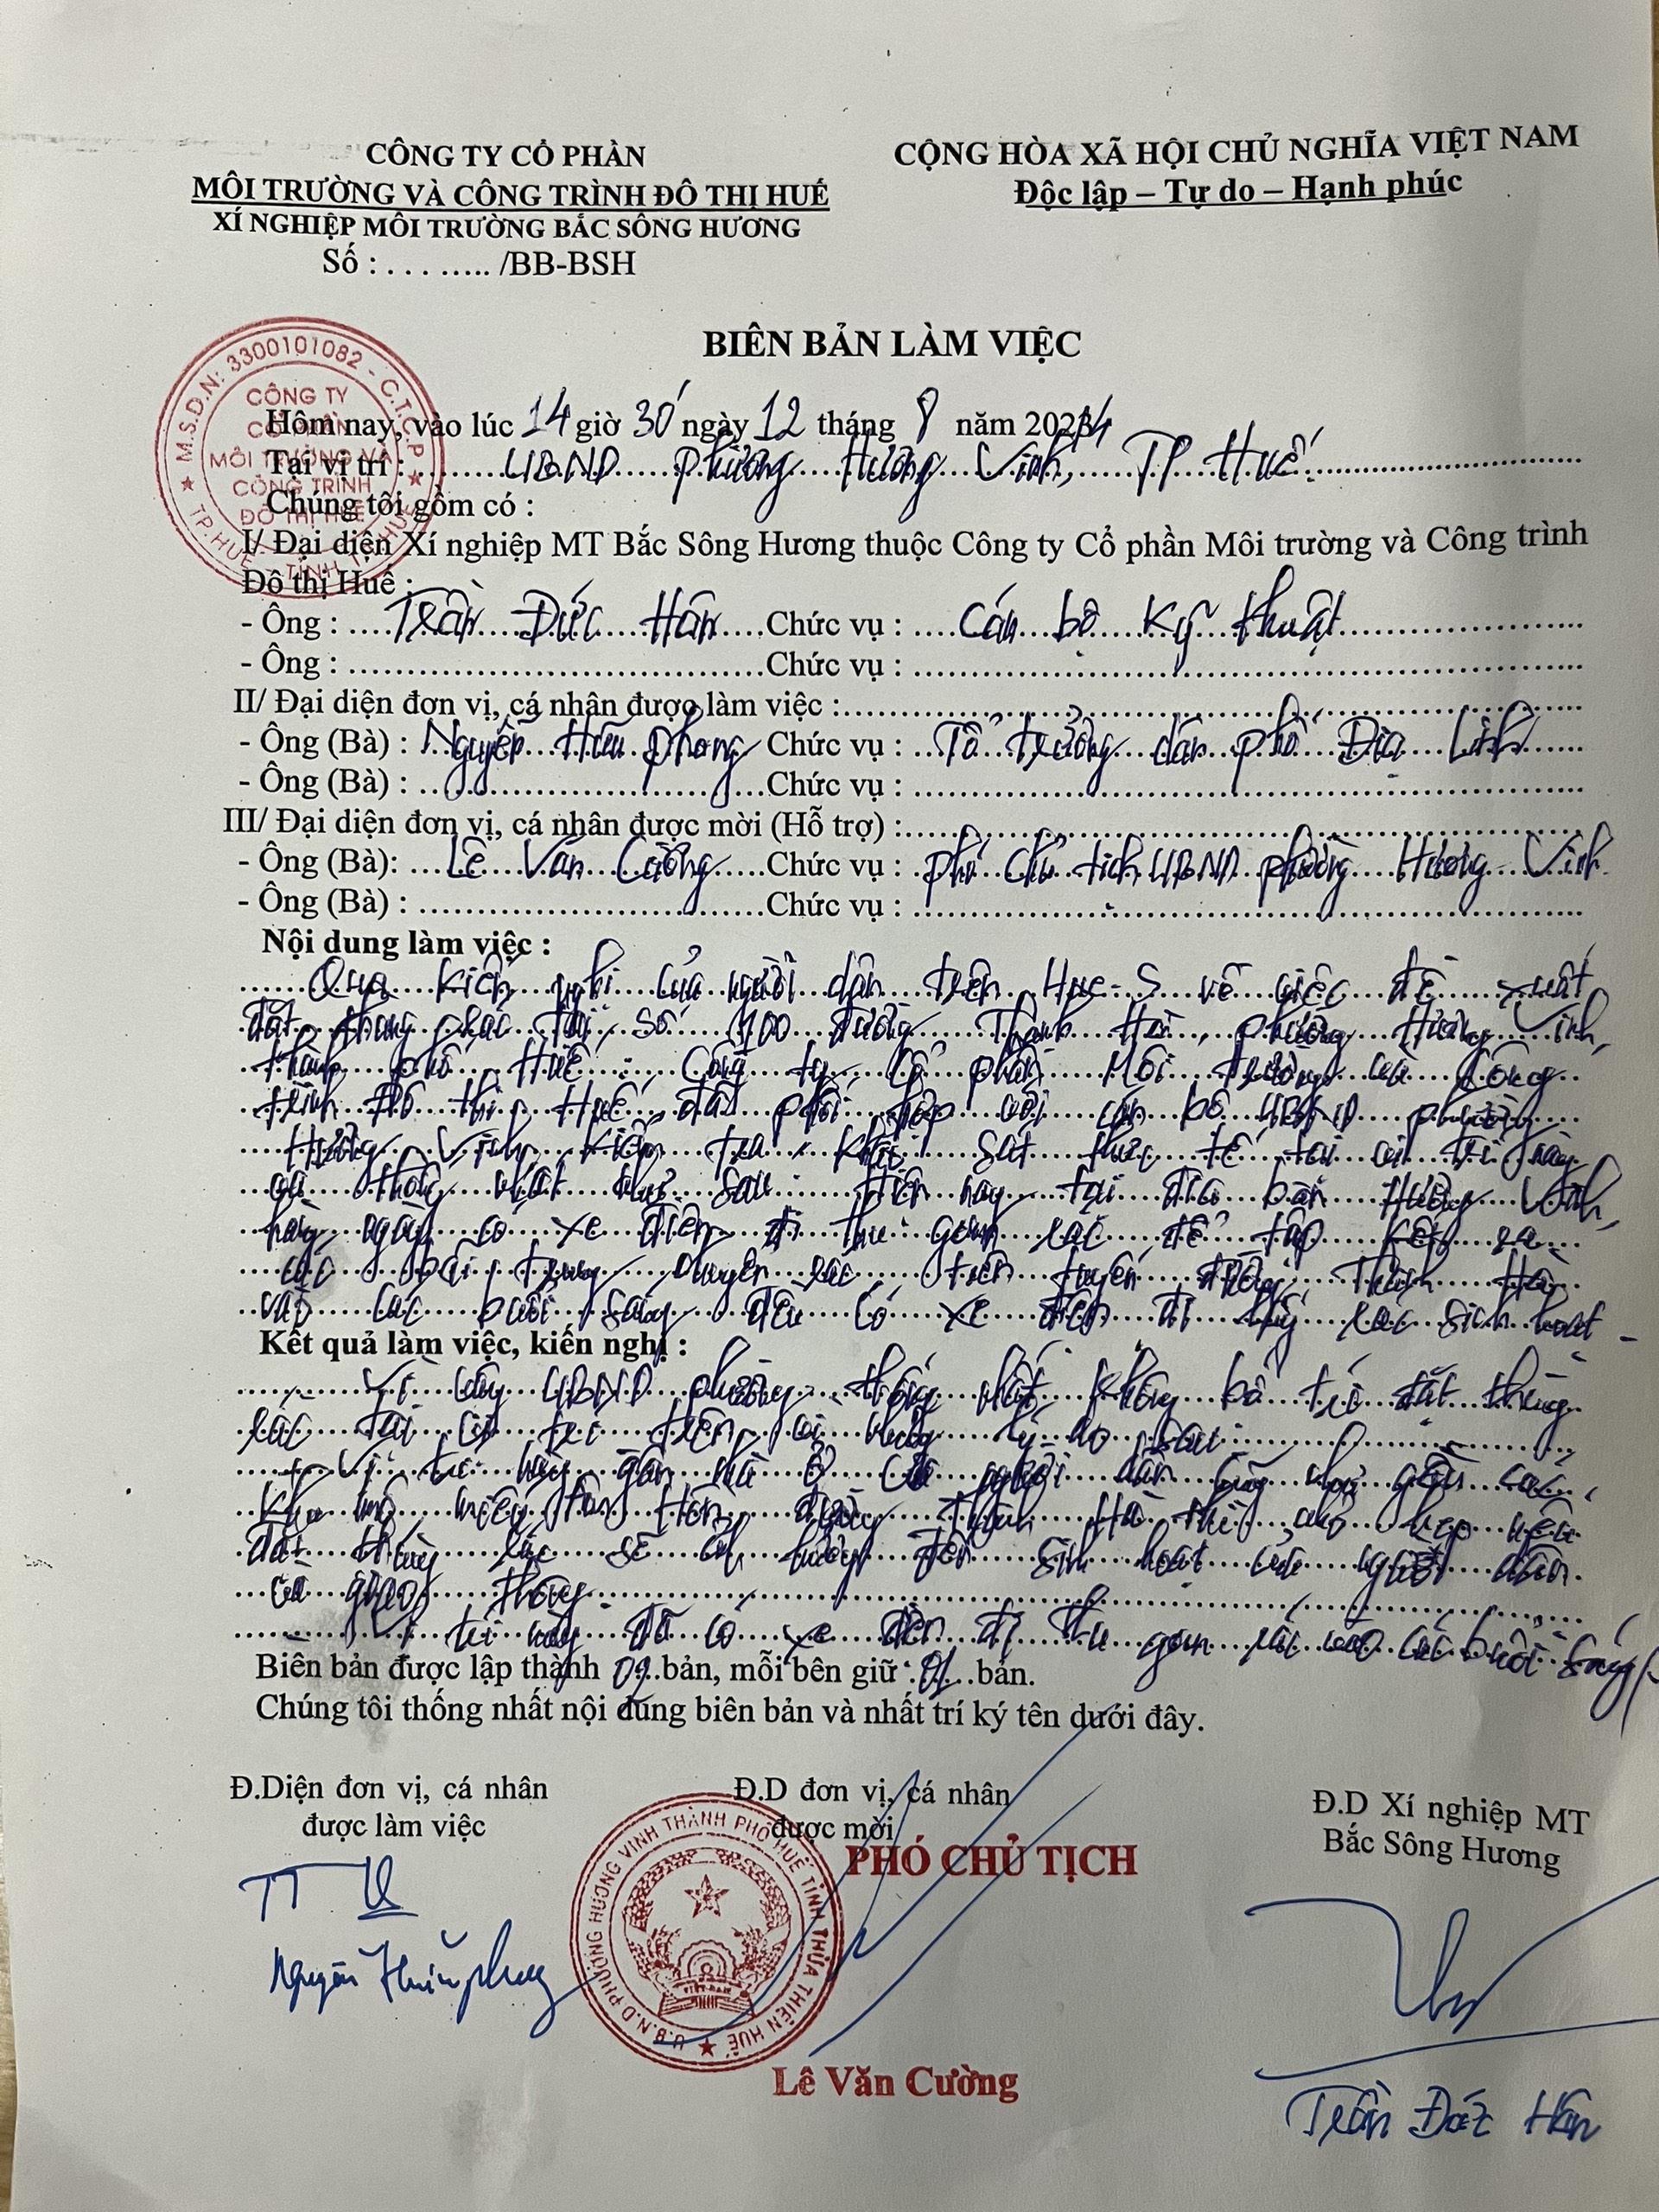 CÔNG TY CỔ PHẦN
MÔI TRƯỜNG VÀ CÔNG TRÌNH ĐÔ THỊ HUẾ
XÍ NGHIỆP MÔI TRƯỜNG BẮC SÔNG HƯƠNG
Số : . . . ….. /BB-BSH
CỘNG HÒA XÃ HỘI CHỦ NGHĨA VIỆT NAM
Độc lập – Tự do – Hạnh phúc
BIÊN BẢN LÀM VIỆC
M.S.D.N: 3300101082 - C.T.C.P
CÔNG TY CỔ PHẦN MÔI TRƯỜNG VÀ CÔNG TRÌNH ĐÔ THỊ HUẾ
Hôm nay, vào lúc 14 giờ 30 ngày 12 tháng 8 năm 2024
Tại vị trí : UBND phường Hương Vinh, TP Huế.
Chúng tôi gồm có :
I/ Đại diện Xí nghiệp MT Bắc Sông Hương thuộc Công ty Cổ phần Môi trường và Công trình
Đô thị Huế :
- Ông : Trần Đức Hân Chức vụ : Cán bộ Kỹ thuật
- Ông : Chức vụ :
II/ Đại diện đơn vị, cá nhân được làm việc :
- Ông (Bà) : Nguyễn Hữu Phong Chức vụ : Tổ trưởng dân phố Địa Linh
- Ông (Bà) : Chức vụ :
III/ Đại diện đơn vị, cá nhân được mời (Hỗ trợ) :
- Ông (Bà): Lê Văn Cường Chức vụ : phó Chủ tịch UBND phường Hương Vinh
- Ông (Bà) : Chức vụ :
Nội dung làm việc :
Qua kiến nghị của người dân trên Hue-S về việc đề xuất
đặt thùng rác tại số 100 đường Thanh Hà, phường Hương Vinh,
thành phố Huế. Công ty Cổ phần Môi trường và Công
trình Đô thị Huế đã phối hợp với cán bộ UBND phường
Hương Vinh kiểm tra, khảo sát thực tế tại vị trí này
và thống nhất như sau: Hiện nay tại địa bàn Hương Vinh,
hàng ngày có xe điện đi thu gom rác để tập kết ra
các bãi trung chuyển rác trên tuyến đường Thanh Hà
vào các buổi sáng đều có xe điện đi lấy rác sinh hoạt
Kết quả làm việc, kiến nghị :
Vì vậy UBND phường thống nhất không bố trí đặt thùng
rác tại vị trí trên, vì những lý do sau:
+ Vị trí này gần nhà ở của người dân cũng như gần các
khu đường Thanh Hà thì nhỏ hẹp nên
đặt thùng rác sẽ ảnh hưởng đến sinh hoạt của người dân
và giao thông
Vị trí này đã có xe điện đi thu gom rác vào các buổi sáng/.
Biên bản được lập thành bản, mỗi bên giữ 01 bản.
Chúng tôi thống nhất nội dung biên bản và nhất trí ký tên dưới đây.
Đ.Diện đơn vị, cá nhân
được làm việc
Đ.D đơn vị, cá nhân
được mời
Đ.D Xí nghiệp MT
Bắc Sông Hương
PHÓ CHỦ TỊCH
U.B.N.D PHƯỜNG HƯƠNG VINH THÀNH PHỐ HUẾ TỈNH THỪA THIÊN HUẾ
VIỆT NAM
Nguyễn Hữu Phong
Lê Văn Cường
Trần Đức Hân